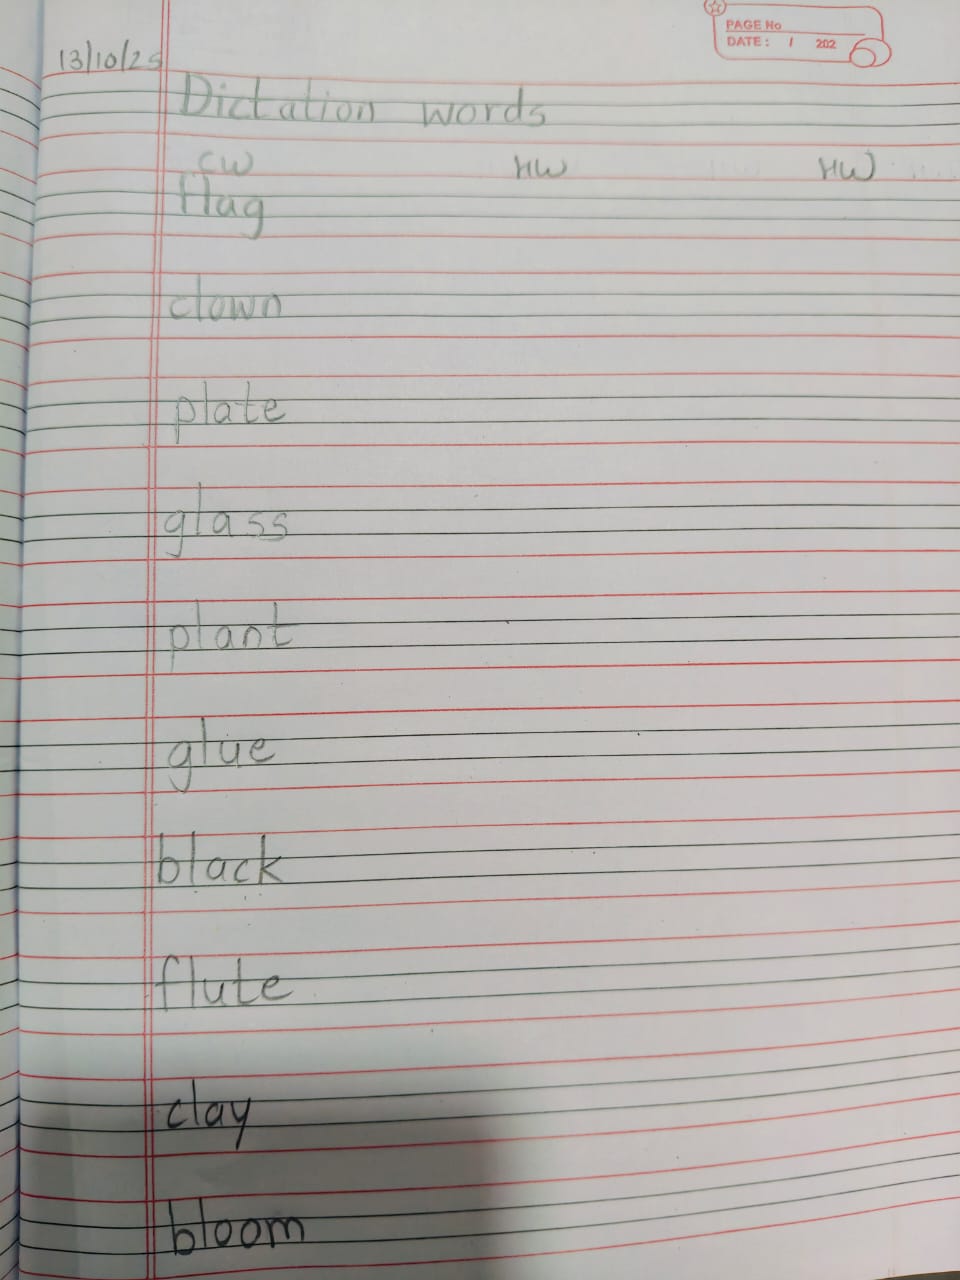 PAGE No
DATE: / 202
13/10/25
Dictation words
CW HW HW
flag
clown
plate
glass
plant
glue
black
flute
clay
bloom